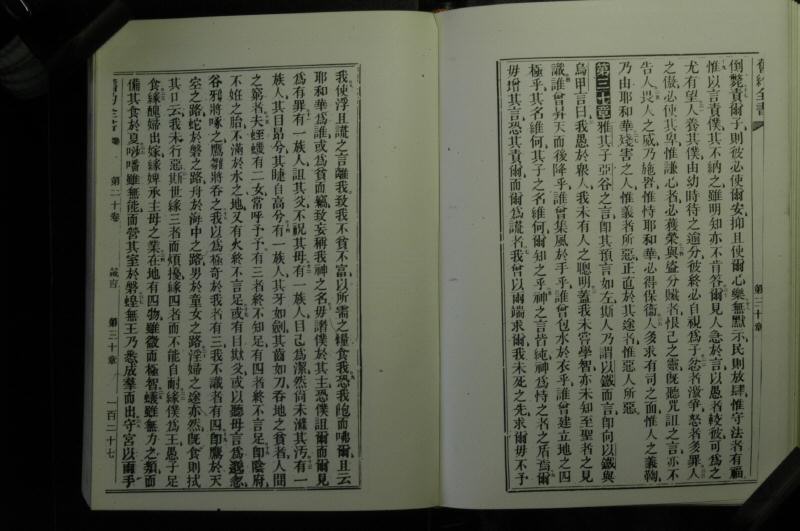 舊約全書
第三十章
倒斃責爾子則彼必使爾安抑且使爾心樂無默示民則放肆惟守法者有福
惟以言責僕其不納之雖明知亦不肯答爾見人急於言以愚者較彼可爲之
尤有望人養其僕由幼時待之逾分彼終必自視爲子忿者激爭怒者多罪人
之傲必使其卑惟謙心者必獲榮與盜分贓者恨己之靈旣聽咒詛之言亦不
告人畏人之威乃施罟惟恃耶和華必得保衞人多求有司之面惟人之義鞫
乃由耶和華殘害之人惟義者所惡正直於其途者惟惡人所惡
第三十章雅其子亞谷之言卽其預言如左斯人乃謂以鐵而言卽向以鐵與
烏甲言曰我愚於衆人我未有人之聰明蓋我未嘗學智亦未知至聖者之見
識誰曾昇天而後降乎誰曾集風於手乎誰曾包水於衣乎誰曾建立地之四
極乎其名維何其子之名維何爾知之乎神之言皆純神爲恃之者之盾焉爾
毋增其言恐其責爾而爾爲謊者我曾以兩端求爾我未死之先求爾毋不予
我使浮且謊之言離我致我不貧不富以所需之糧食我恐我飽而咈爾且云
耶和華爲誰或爲貧而竊致妄稱我神之名毋譖僕於其主恐僕詛爾而爾見
爲有罪有一族人詛其父不祝其母有一族人目己爲潔然尙未滌其汚有一
族人其目昂兮其睫自高兮有一族人其牙如劍其齒如刀吞地之貧者人間
之窮者夫蛭蟣有二女常呼予予有三者終不知足有四者終不言足卽陰府
不姙之胎不滿於水之地又有火終不言足或有目欺父或以聽母言爲藐忽
谷鴉將啄之鷹雛將吞之我以爲極奇於我者有三我不識者有四卽鷹於天
空之路蛇於磐之路舟於海中之路男於童女之路淫婦之途亦然旣食則拭
其口云我未行惡斯世緣三者而煩擾緣四者而不能自耐緣僕爲王愚子足
食緣醜婦出嫁緣婢承主母之業在地有四物雖微而極智蟻雖無力之類而
備其食於夏沙噃雖無能而營其室於磐蝗無王乃悉成羣而出守宮以兩手
第二十卷
箴言
第三十章
一百二十七